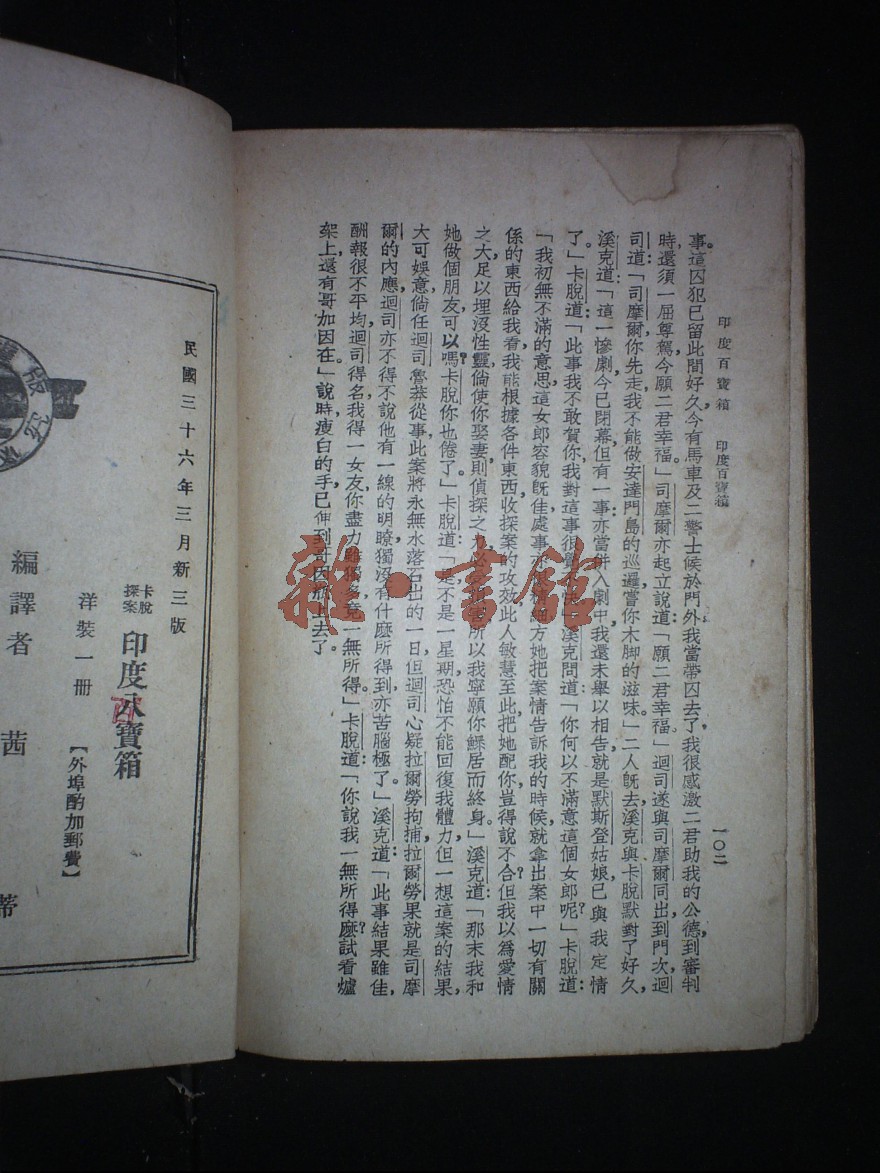 印度百寶箱　印度百寶箱
一〇二
事。這囚犯已留此間好久今有馬車及二警士候於門外我當帶囚去了我很感激二君助我的公德到審判
時還須一屈尊駕今願二君幸福。」司摩爾亦起立說道：「願二君幸福」迴司遂與司摩爾同出到門次迴
司道：「司摩爾你先走我不能做安達門島的巡邏嘗你木脚的滋味。」二人旣去溪克與卡脫默對了好久，
溪克道：「這一慘劇今已閉幕但有一事亦當併入劇中我還未舉以相告就是默斯登姑娘已與我定情
了。」卡脫道：「此事我不敢賀你我對這事很 溪克問道：「你何以不滿意這個女郎呢？」卡脫道：
「我初無不滿的意思這女郎容貌旣佳處事亦 細方她把案情告訴我的時候就拿出案中一切有關
係的東西給我看我能根據各件東西收探案的攻效此人敏慧至此把她配你豈得說不合但我以爲愛情
之大足以埋沒性靈倘使你娶妻則偵探之力必 所以我寧願你鰥居而終身。」溪克道：「那末我和
她做個朋友可以嗎？卡脫你也倦了。」卡脫道：「 不是一星期恐怕不能回復我體力但一想這案的結果，
大可娛意倘任迴司魯莽從事此案將永無水落石出的一日但迴司心疑拉爾勞拘捕拉爾勞果就是司摩
爾的內應迴司亦不得不說他有一線的明瞭獨沒有什麽所得到亦苦腦極了。」溪克道：「此事結果雖佳
酬報很不平均迴司得名我得一女友你盡力雖獨多竟一無所得」卡脫道：「你說我一無所得麽？試看爐
架上，還有哥加因在。」說時瘦白的手已伸到哥因瓶上去了。
民國三十六年三月新三版
卡脫探案
印度百寶箱
洋裝一冊
【外埠酌加郵費】
編譯者　茜蒂
版權
雜·書館